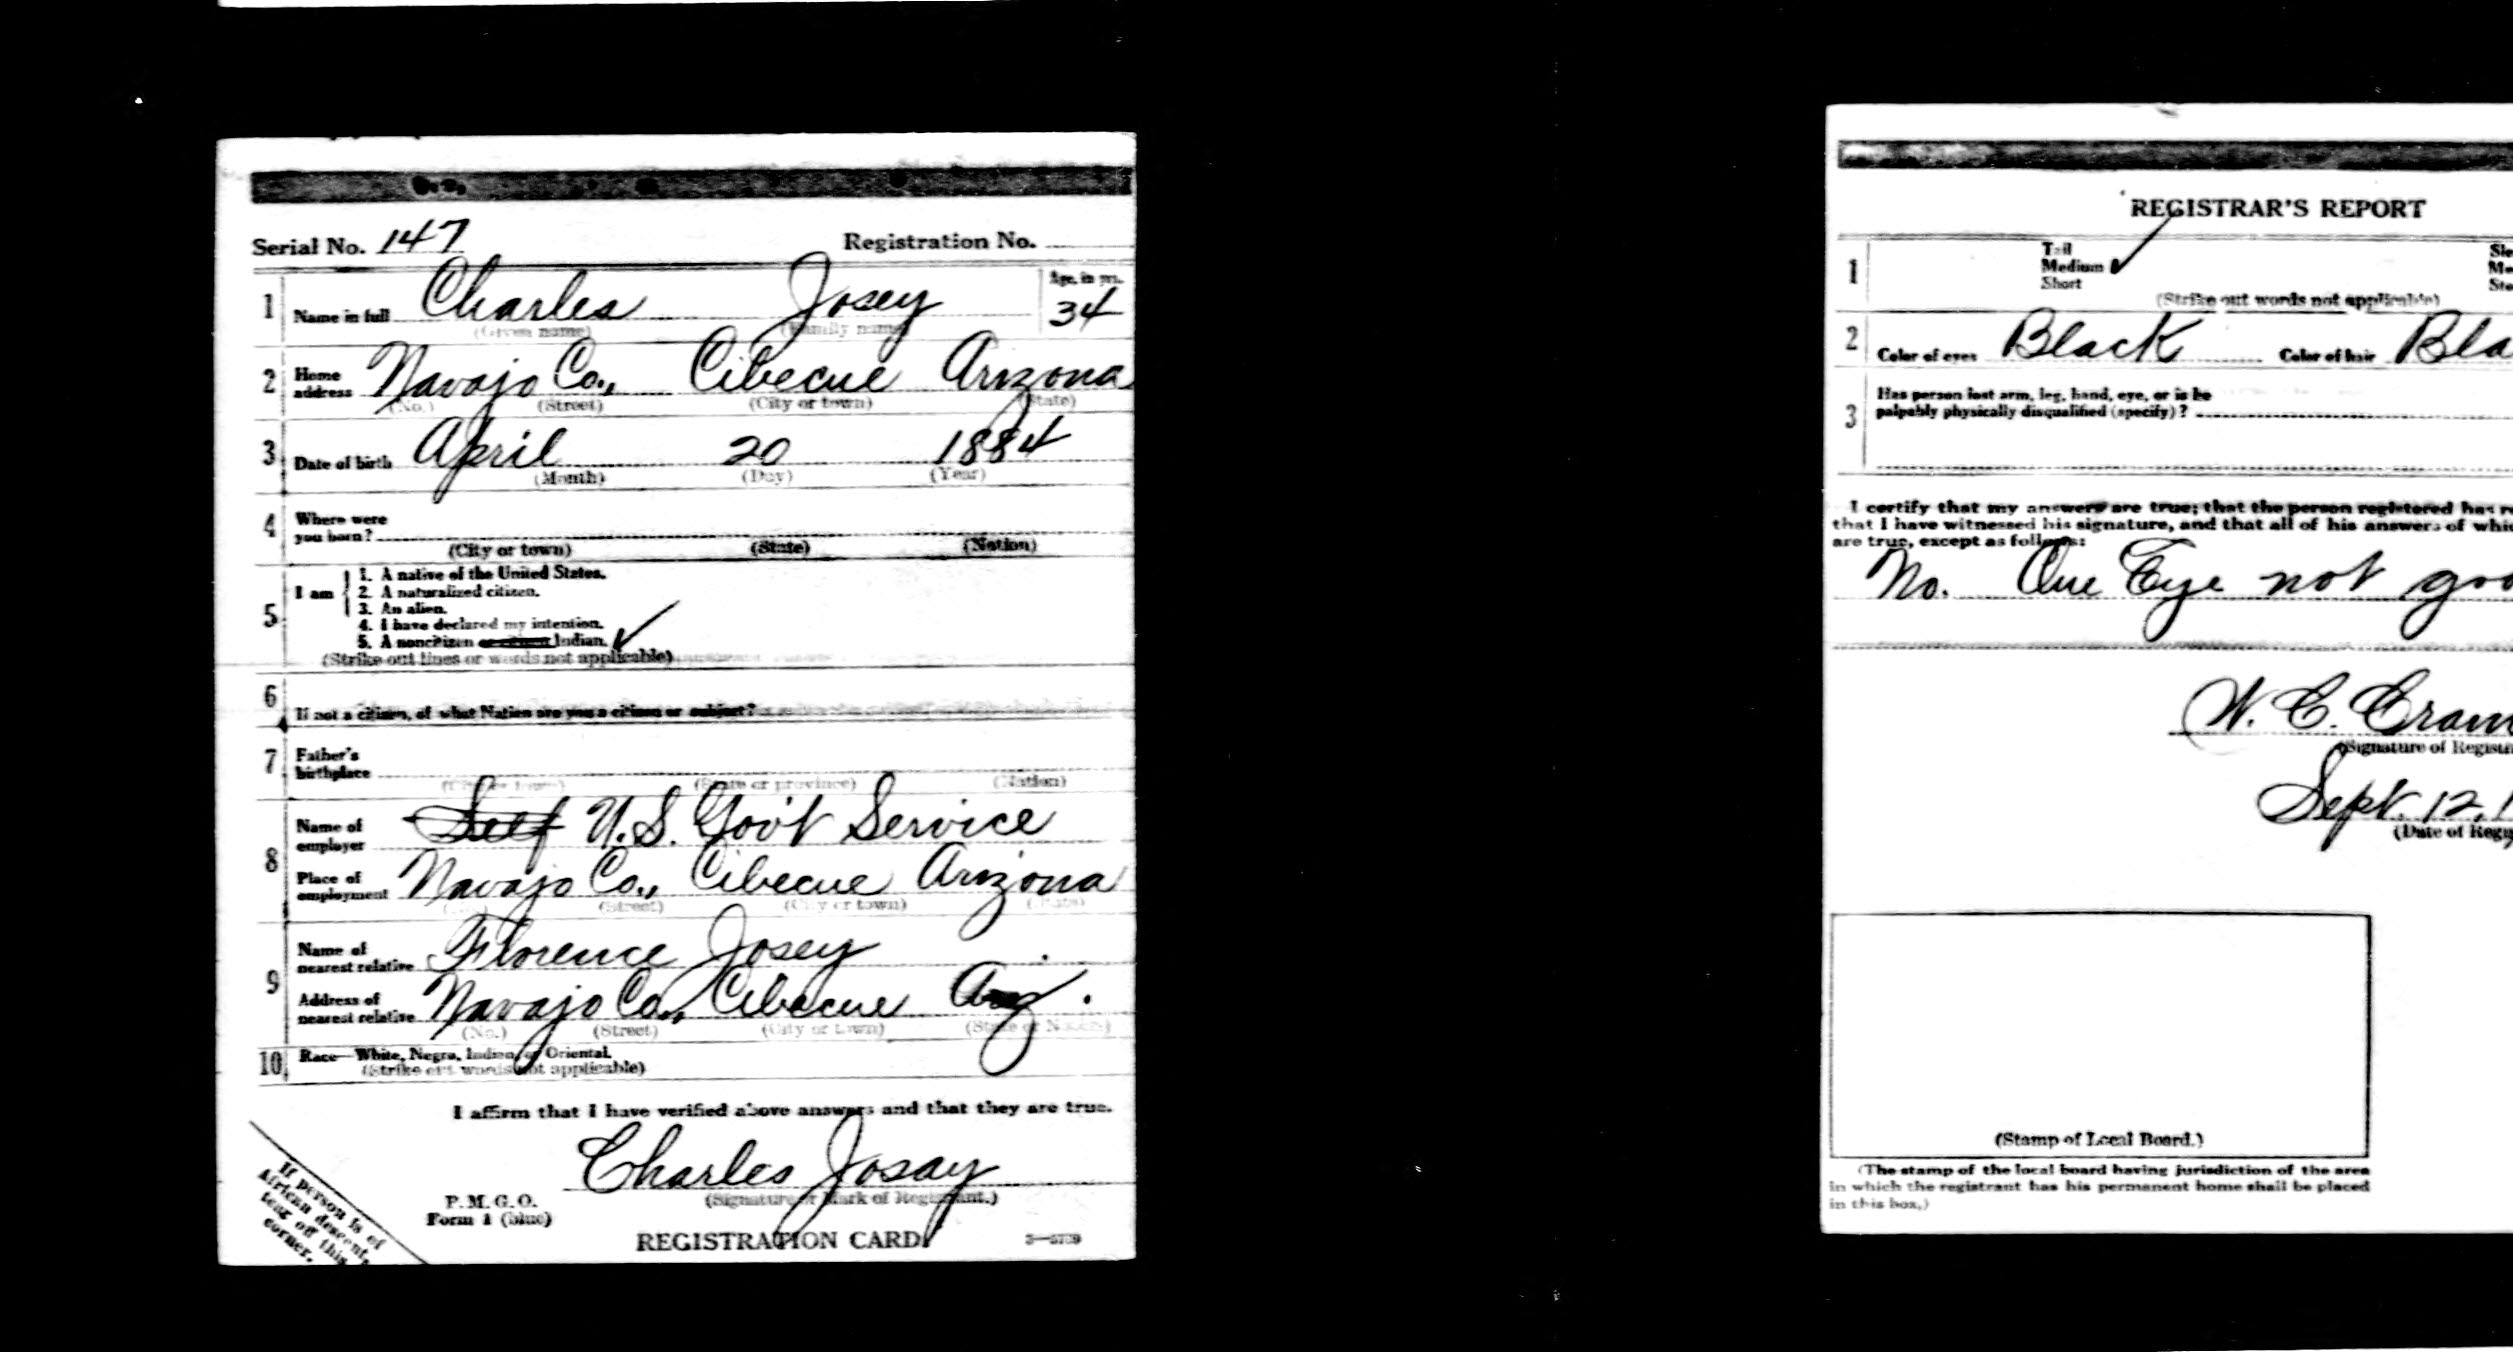 Serial No. 147 Registration No.
1 Name in full Charles Josey Age, in yrs. 34
(Given name) (Family name)
2 Home address Navajo Co., Cibecue Arizona
(No.) (Street) (City or town) (State)
3 Date of birth April 20 1884
(Month) (Day) (Year)
4 Where were you born?
(City or town) (State) (Nation)
5 I am
1. A native of the United States.
2. A naturalized citizen.
3. An alien.
4. I have declared my intention.
5. A noncitizen or citizen Indian. ✓
(Strike out lines or words not applicable)
6 If not a citizen, of what Nation are you a citizen or subject?
7 Father's birthplace
(City or town) (State or province) (Nation)
8 Name of employer Self U.S. Gov't Service
Place of employment Navajo Co., Cibecue Arizona
(No.) (Street) (City or town) (State)
9 Name of nearest relative Florence Josey
Address of nearest relative Navajo Co., Cibecue Ariz.
(No.) (Street) (City or town) (State or Nation)
10 Race—White, Negro, Indian, or Oriental.
(Strike out words not applicable)
I affirm that I have verified above answers and that they are true.
Charles Josay
(Signature or Mark of Registrant.)
P. M. G. O.
Form 1 (blue)
REGISTRATION CARD
If person is of
African descent,
tear off this
corner.
REGISTRAR'S REPORT
1 Tall
Medium ✓
Short
(Strike out words not applicable)
2 Color of eyes Black Color of hair Bla
3 Has person lost arm, leg, hand, eye, or is he
palpably physically disqualified (specify)?
I certify that my answers are true; that the person registered has r
that I have witnessed his signature, and that all of his answers of whi
are true, except as follows:
No. One Eye not goo
W. C. Cram
(Signature of Registr
Sept. 12, 1
(Date of Regi
(Stamp of Local Board.)
(The stamp of the local board having jurisdiction of the area
in which the registrant has his permanent home shall be placed
in this box.)